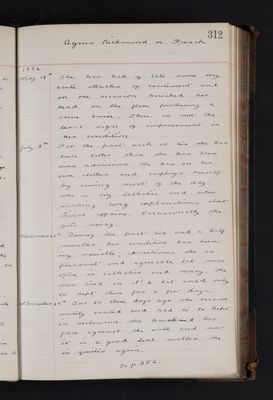 312
Agnes Richmond or French
1896
May 12th She has had of late some very
acute attacks of excitement and
on one occasion knocked her
head on the floor producing a
There is not the
least sign of improvement in
her condition.
July 8th For the past week or so she has
been better than she has been
since admission she has on her
own clothes and employs herself
by sewing most of the day.
she is very talkative and
making long explanations about
affairs. Occasionally she
gets noisy.
September During the past two and a half
months her condition has been
very variable, sometimes she is
pleasant and agreeable but more
often is talkative and noisy. She
was tried in but could only
be kept there for a few days.
November Two or three days ago she became
excited and had to be kept
in seclusion. she her
face against the wall and now
it is a good deal swollen. She
is quieter again.
To p 382.